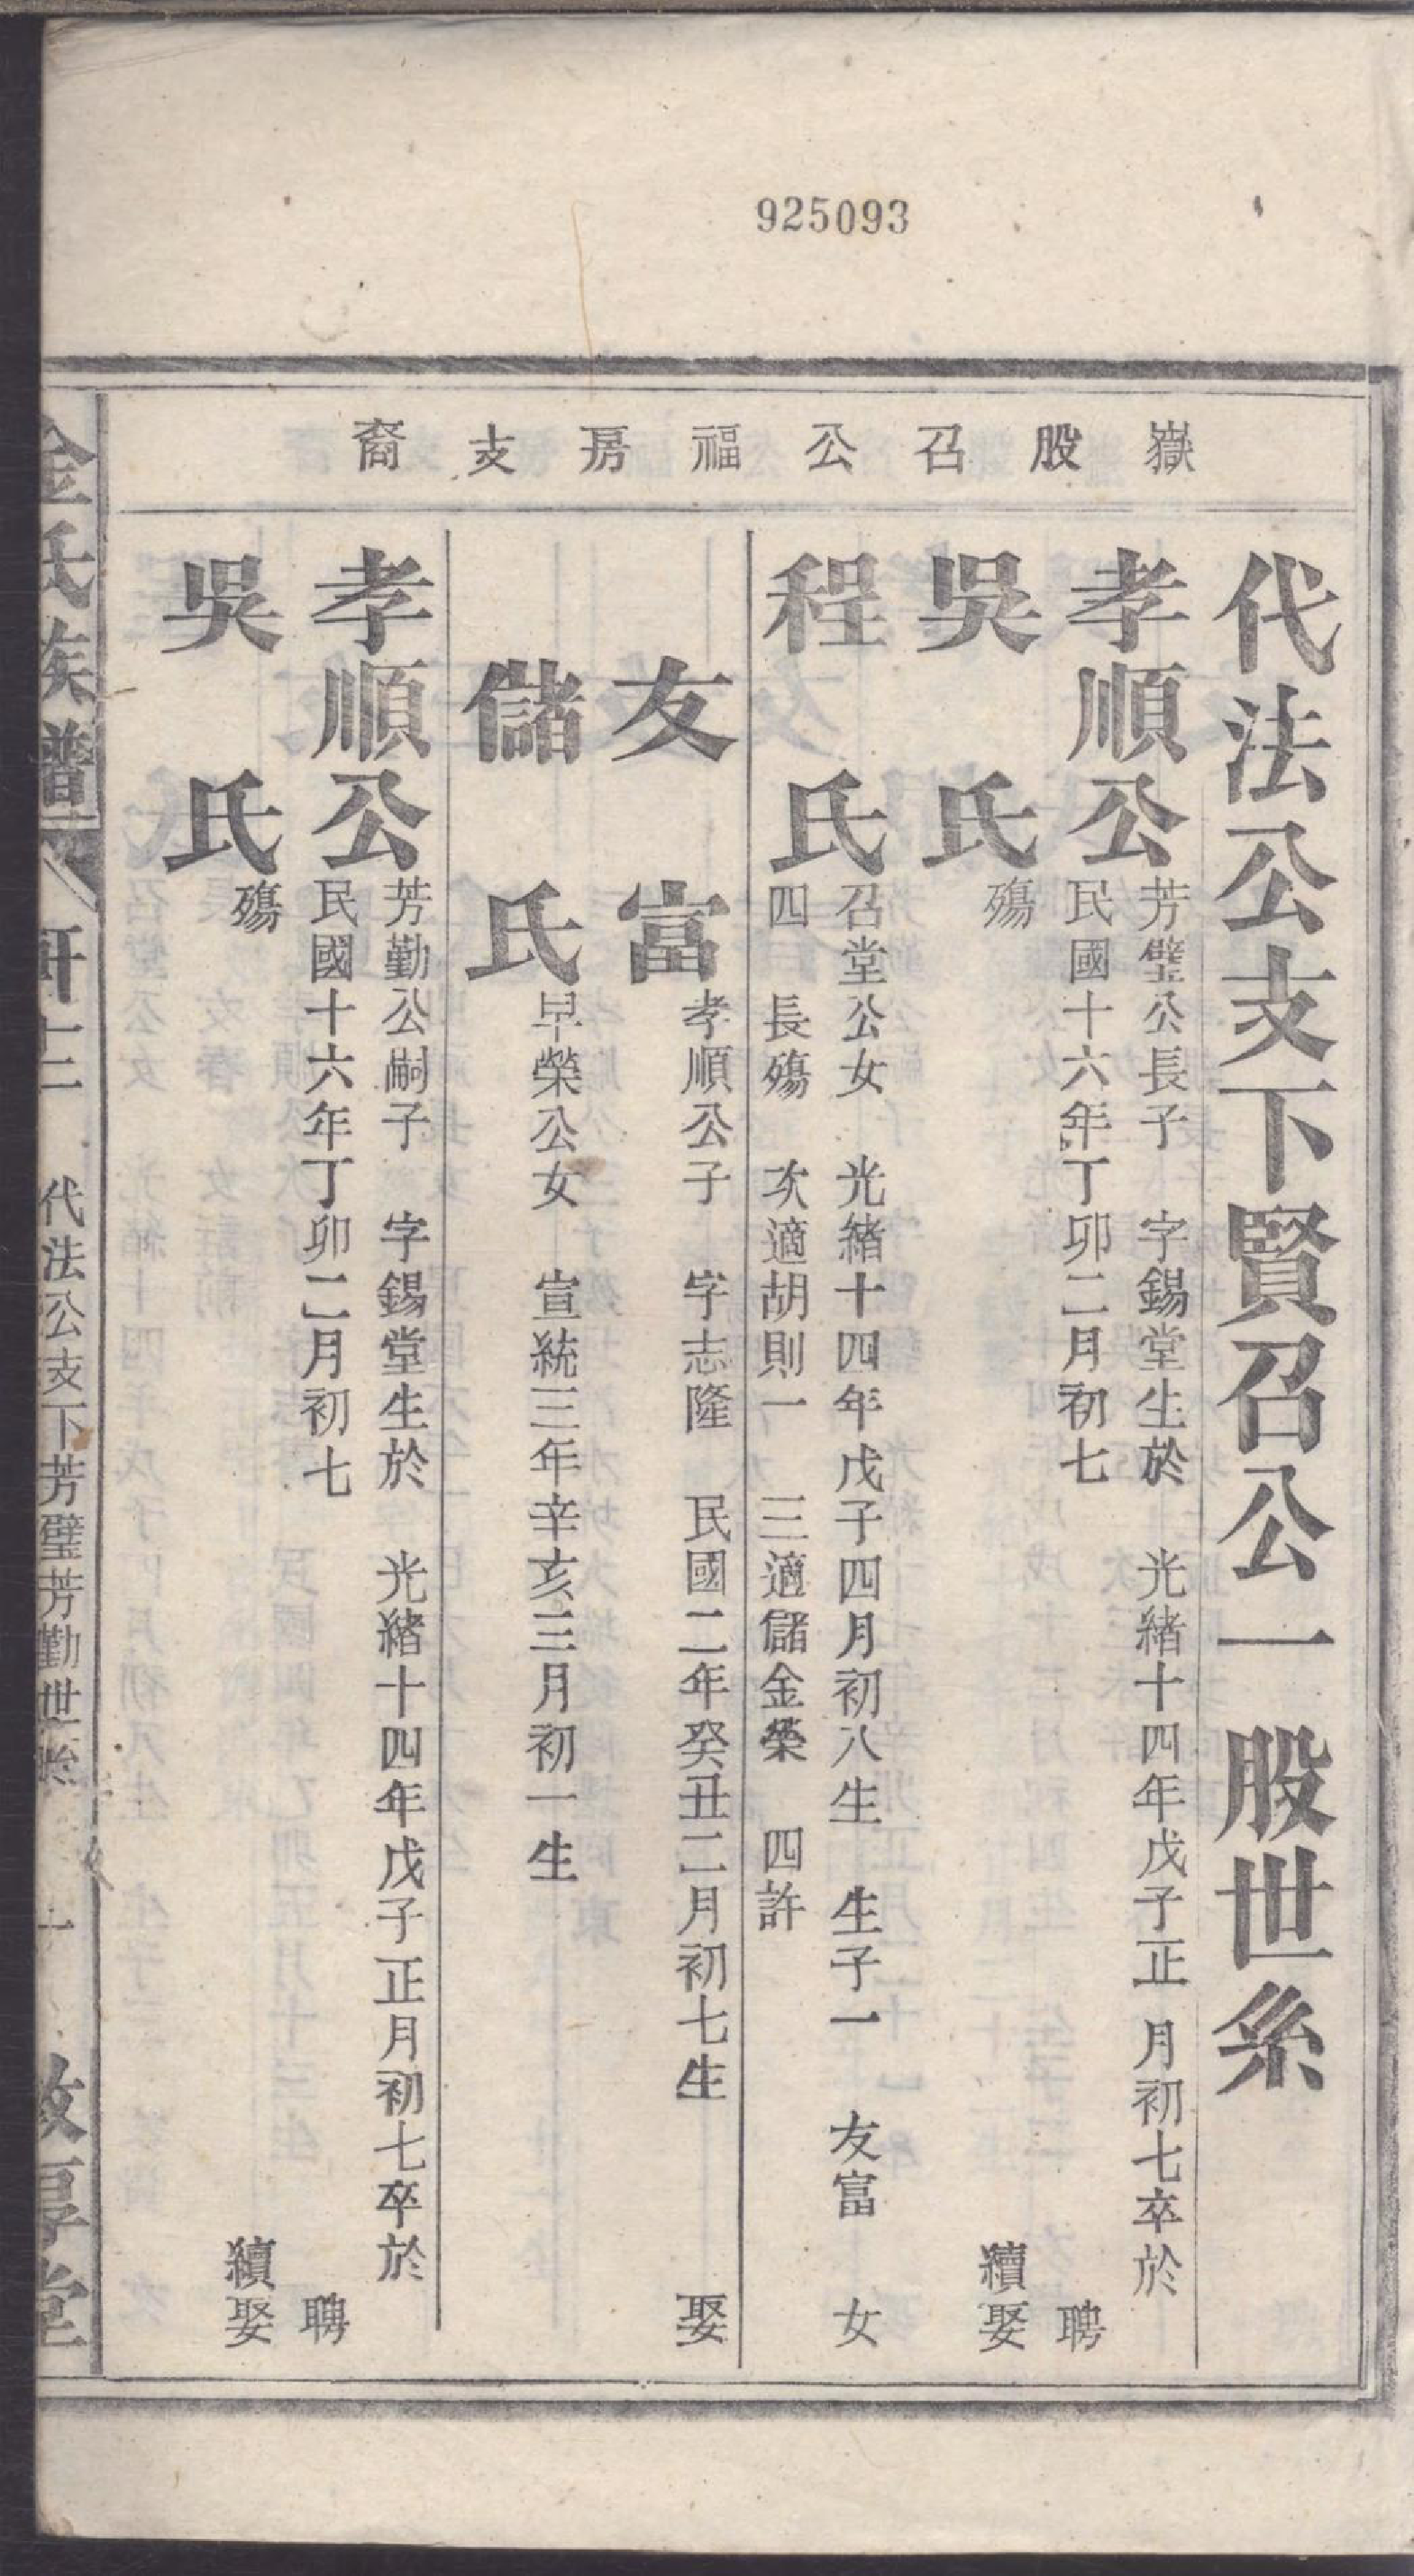 925093
嶽股召公福房支裔
代法公支下賢召公一股世系
孝順公
芳璧公長子　字錫堂生於　光緒十四年戊子正月初七卒於
民國十六年丁卯二月初七　聘
吳　氏
殤　續娶
程　氏
召堂公女　光緒十四年戊子四月初八生　生子一　友富　女
四　長殤　次適胡則一　三適儲金榮　四許
友　富
孝順公子　字志隆　民國二年癸丑二月初七生　娶
儲　氏
早榮公女　宣統三年辛亥三月初一生
孝順公
芳勤公嗣子　字錫堂生於　光緒十四年戊子正月初七卒於
民國十六年丁卯二月初七　聘
吳　氏
殤　續娶
金氏族譜　代法公支下芳璧芳勤世系　敦厚堂